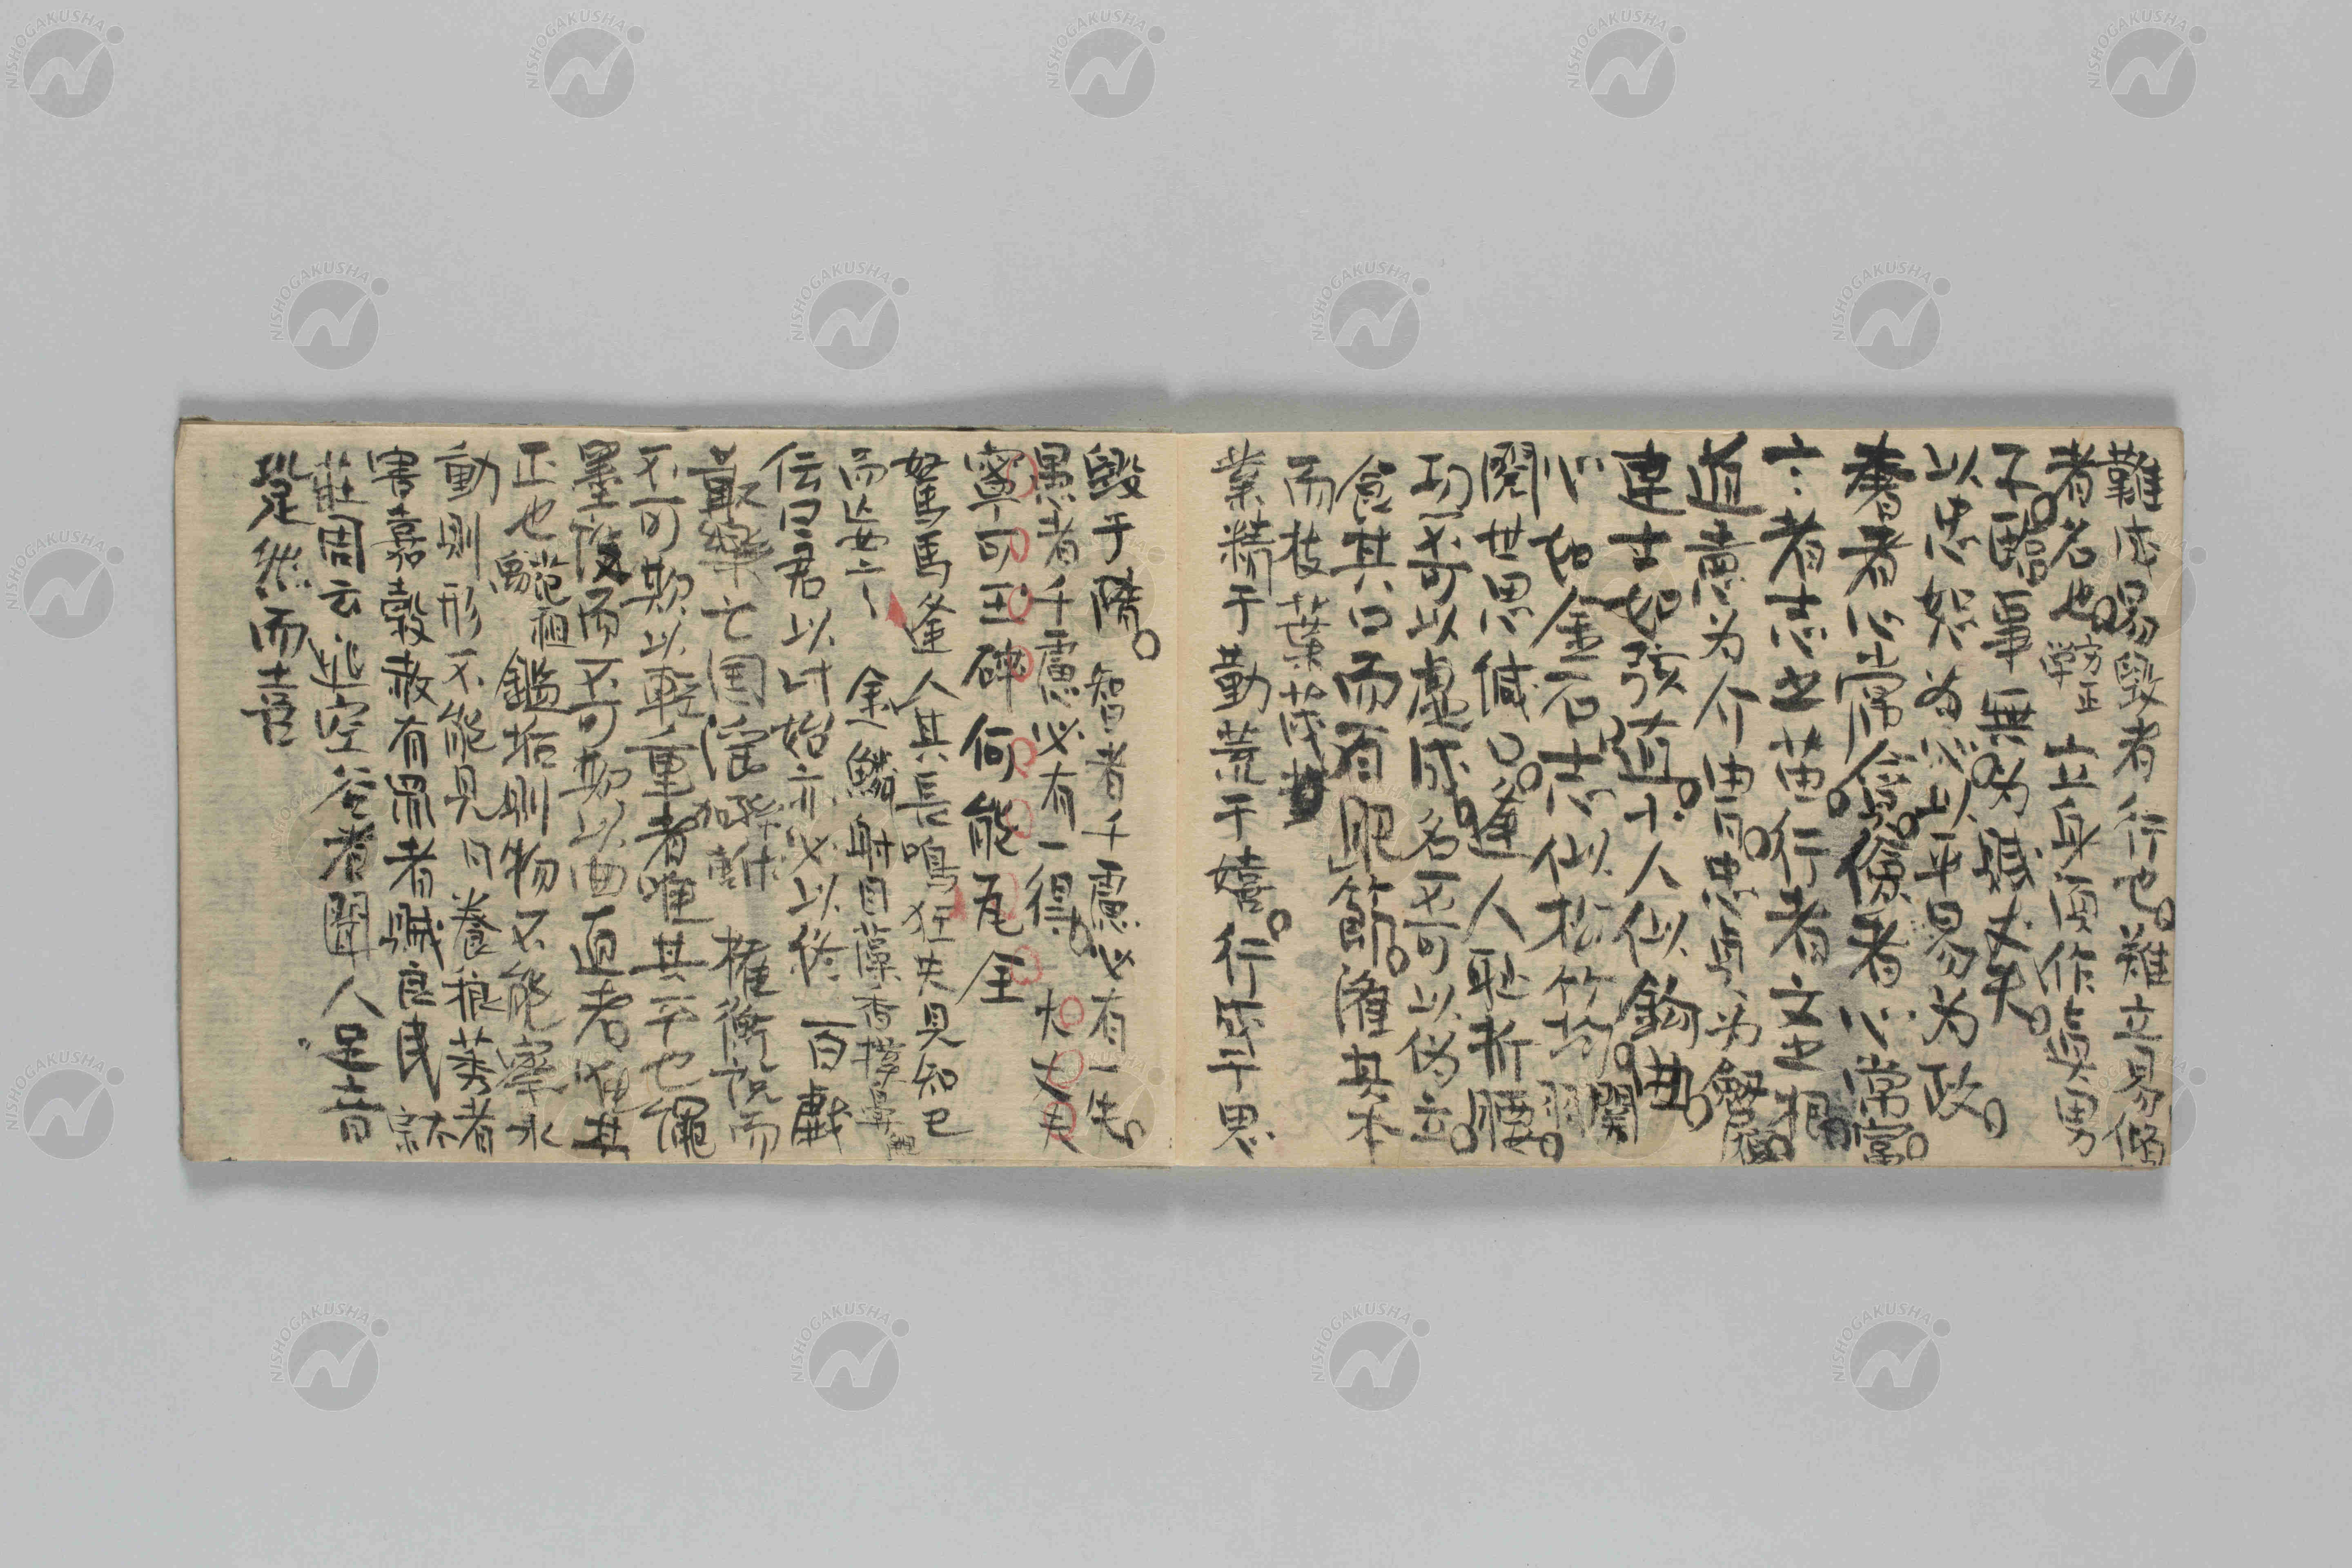 難成易毀者行也難立易傾
者名也 立身須作真男
子臨事無為賤丈夫
以忠恕為心以平易為政
奢者心常貧儉者心常富
言者志之苗行者文之根
道意為介冑忠貞為劔
達士如弦直小人似鉤曲
心如金石志似松竹筠 關
閱世思緘口逢人恥折腰
功不可以虛成名不可以偽立
食其口而百肥節灌其本
而枝葉茂
業精于勤荒于嬉行成于思
毀于隨 智者千慮必有一失
愚者千慮必有一得 大丈夫
寧可玉碎何能瓦全
駑馬逢人其長鳴狂夫見知己
而 金鱗射目藻香撲鼻
伝曰君以此始亦必以終 百戲
最樂亡国淫 權衡設而
不可欺以輕重者唯其平也繩
墨設而不可欺以曲直者唯其
正也 鑑垢則物不能察水
動則形不能見 養稂莠者
害嘉穀赦有罪者賊良民
莊周云逃空谷者聞人足音
跫然而喜
NISHOGAKUSHA